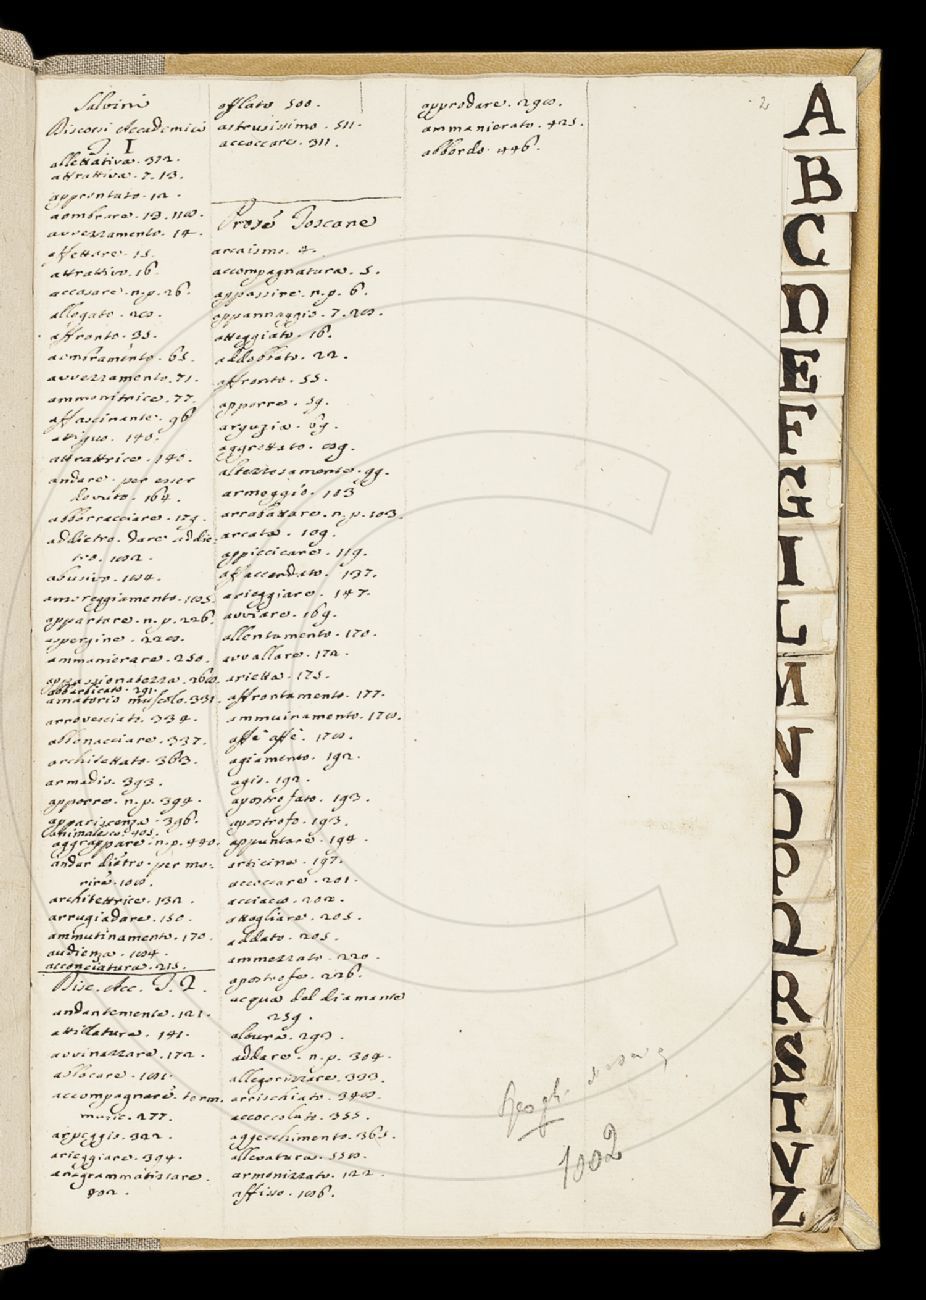 Salvini
Discorsi Accademici
T. I
allettativa. 372.
attrattiva. 7. 13.
approntato. 12.
aombrare. 18. 118.
avvezzamento. 14.
affettare. 15.
attrattivo. 16.
accasare. n.p. 26.
allogato. 28.
affronto. 35.
aombramento. 65.
avvezzamento. 71.
ammonitrice. 77.
affascinante. 96
attiguo. 140.
attrattrice. 140.
andare. per esser
dovuto. 164.
abborracciare. 179.
addietro. dare addie:
tro. 182.
abusivo. 184.
amoreggiamento. 185.
appartare. n.p. 226.
aspergine. 228.
ammanierare. 250.
appassionatezza. 268.
abbarbicato. 291.
amatorio muscolo. 331.
arrovesciato. 334.
abbonacciare. 337.
architettato. 363.
armadio. 393.
apporre. n.p. 394.
appariscenza. 396.
animalesco. 405.
aggrappare. n.p. 440.
andar dietro. per mo:
rire. 108.
architettrice. 132.
arrugiadare. 150.
ammutinamento. 170.
audienza. 184.
acconciatura. 215.
Disc. Acc. T. 2.
andantemente. 121.
attillatura. 141.
avvinazzare. 172.
allocare. 181.
accompagnare. term.
music. 277.
arpeggio. 322.
arieggiare. 394.
anagrammatizzare.
802.
afflato 500.
astrusissimo. 511.
accoccare. 311.
Prose Toscane
arcaismo. 4.
accompagnatura. 5.
appassire. n.p. 6.
appannaggio. 7. 28.
atteggiato. 16.
addobbato. 22.
affronto. 55.
apporre. 59.
arguzia. 69.
aggrottato. 89.
altezzosamente. 99.
armeggio. 113
arrabattare. n.p. 103.
arcata. 109.
appiccicare. 119.
affaccendato. 137.
arieggiare. 147.
avviare. 169.
allentamento. 170.
avvallare. 172.
arietta. 175.
affrontamento. 177.
ammuinamento. 178.
affè affè. 178.
agiamento. 192.
agio. 192.
apostrofato. 193.
apostrofo. 193.
appuntare. 194.
articina. 197.
accoccare. 201.
acciaco. 202.
attagliare. 205.
addato. 205.
ammezzato. 220.
apostrofe. 226.
acqua del diamante
259.
albura. 293.
addare. n.p. 304.
allegorizzare. 333.
arrischiato. 348.
accoccolato. 355.
aggecchimento. 365.
allevatura. 558.
armonizzato. 122.
affisso. 186.
approdare. 298.
ammanierato. 425.
abbordo. 446.
2
1002
A
B
C
D
E
F
G
I
L
M
N
O
P
Q
R
S
T
V
Z